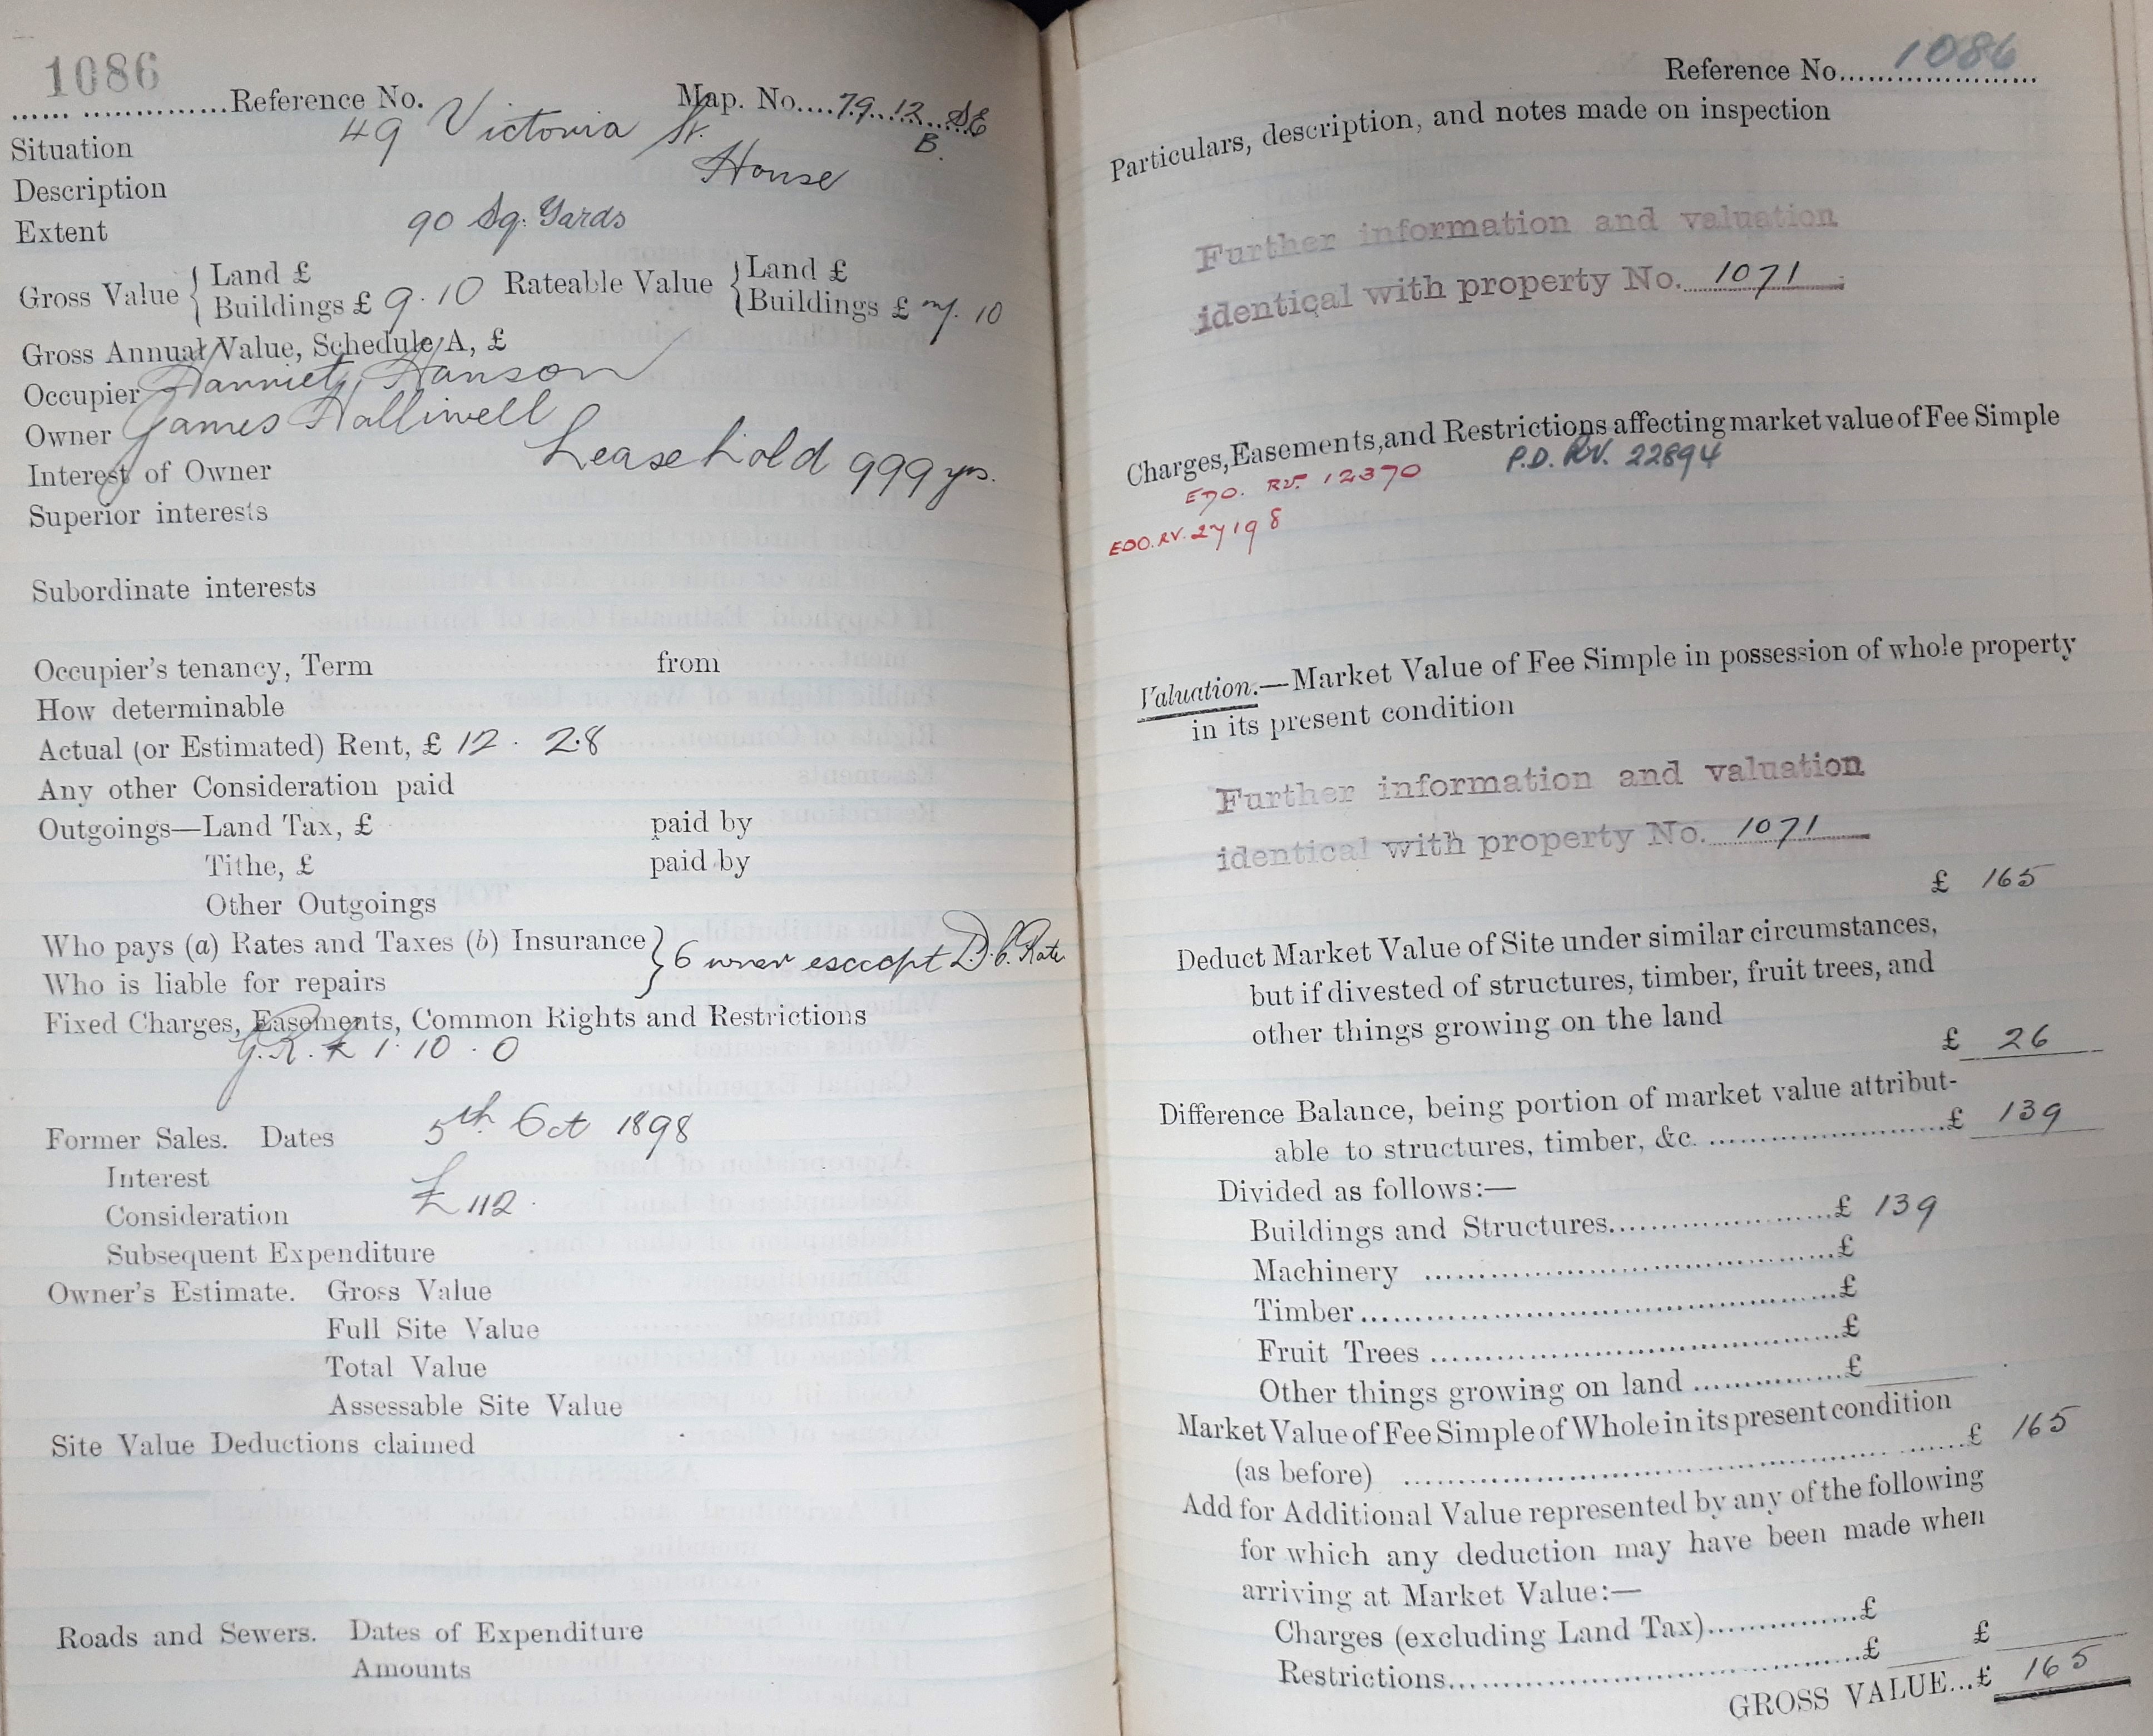 1086
Reference No. Map. No. 79.12.SE
B.
Situation 49 Victoria St.
Description House
Extent 90 Sq. Yards
Gross Value { Land £ Rateable Value { Land £
Buildings £ 9.10 Buildings £ 10
Gross Annual Value, Schedule A, £
Occupier Harriet Hanson
Owner James Halliwell
Interest of Owner Leasehold 999 yrs.
Superior interests
Subordinate interests
Occupier's tenancy, Term from
How determinable
Actual (or Estimated) Rent, £ 12. 2.8
Any other Consideration paid
Outgoings—Land Tax, £ paid by
Tithe, £ paid by
Other Outgoings
Who pays (a) Rates and Taxes (b) Insurance } Owner except Rate
Who is liable for repairs
Fixed Charges, Easements, Common Rights and Restrictions
G.R. £ 1.10.0
Former Sales. Dates 5th Oct 1898
Interest
Consideration £112.
Subsequent Expenditure
Owner's Estimate. Gross Value
Full Site Value
Total Value
Assessable Site Value
Site Value Deductions claimed
Roads and Sewers. Dates of Expenditure
Amounts
Reference No. 1086
Particulars, description, and notes made on inspection
Further information and valuation
identical with property No. 1071
Charges, Easements, and Restrictions affecting market value of Fee Simple
EDO. RV. 12370 P.D. RV. 22894
EDO. RV. 27198
Valuation.—Market Value of Fee Simple in possession of whole property
in its present condition
Further information and valuation
identical with property No. 1071
£ 165
Deduct Market Value of Site under similar circumstances,
but if divested of structures, timber, fruit trees, and
other things growing on the land
£ 26
Difference Balance, being portion of market value attribut-
able to structures, timber, &c. £ 139
Divided as follows:—
Buildings and Structures £ 139
Machinery £
Timber £
Fruit Trees £
Other things growing on land £
Market Value of Fee Simple of Whole in its present condition
(as before) £ 165
Add for Additional Value represented by any of the following
for which any deduction may have been made when
arriving at Market Value:—
Charges (excluding Land Tax) £
Restrictions £ £
GROSS VALUE...£ 165